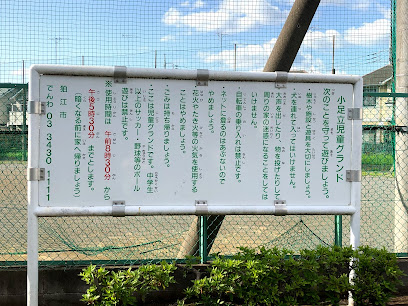 小足立児童グランド
次のことを守って遊びましょう。
・樹木や施設・遊具を大切にしましょう。
・犬を連れて入ってはいけません。
・大声を出したり、物を投げたりして
周りの家の迷惑になることをしては
いけません。
・自転車の乗り入れは禁止です。
・ネットに登るのはあぶないので
やめましょう。
・花火やたき火等の火気を使用する
ことはやめましょう。
・ごみは持ち帰りましょう。
・ここは児童グランドです。中学生
以上のサッカー、野球等のボール
遊びは禁止です。
※使用時間は、午前8時30分から
午後5時30分までとします。
（暗くなる前に家へ帰りましょう）
狛江市
でんわ 03 3430 1111